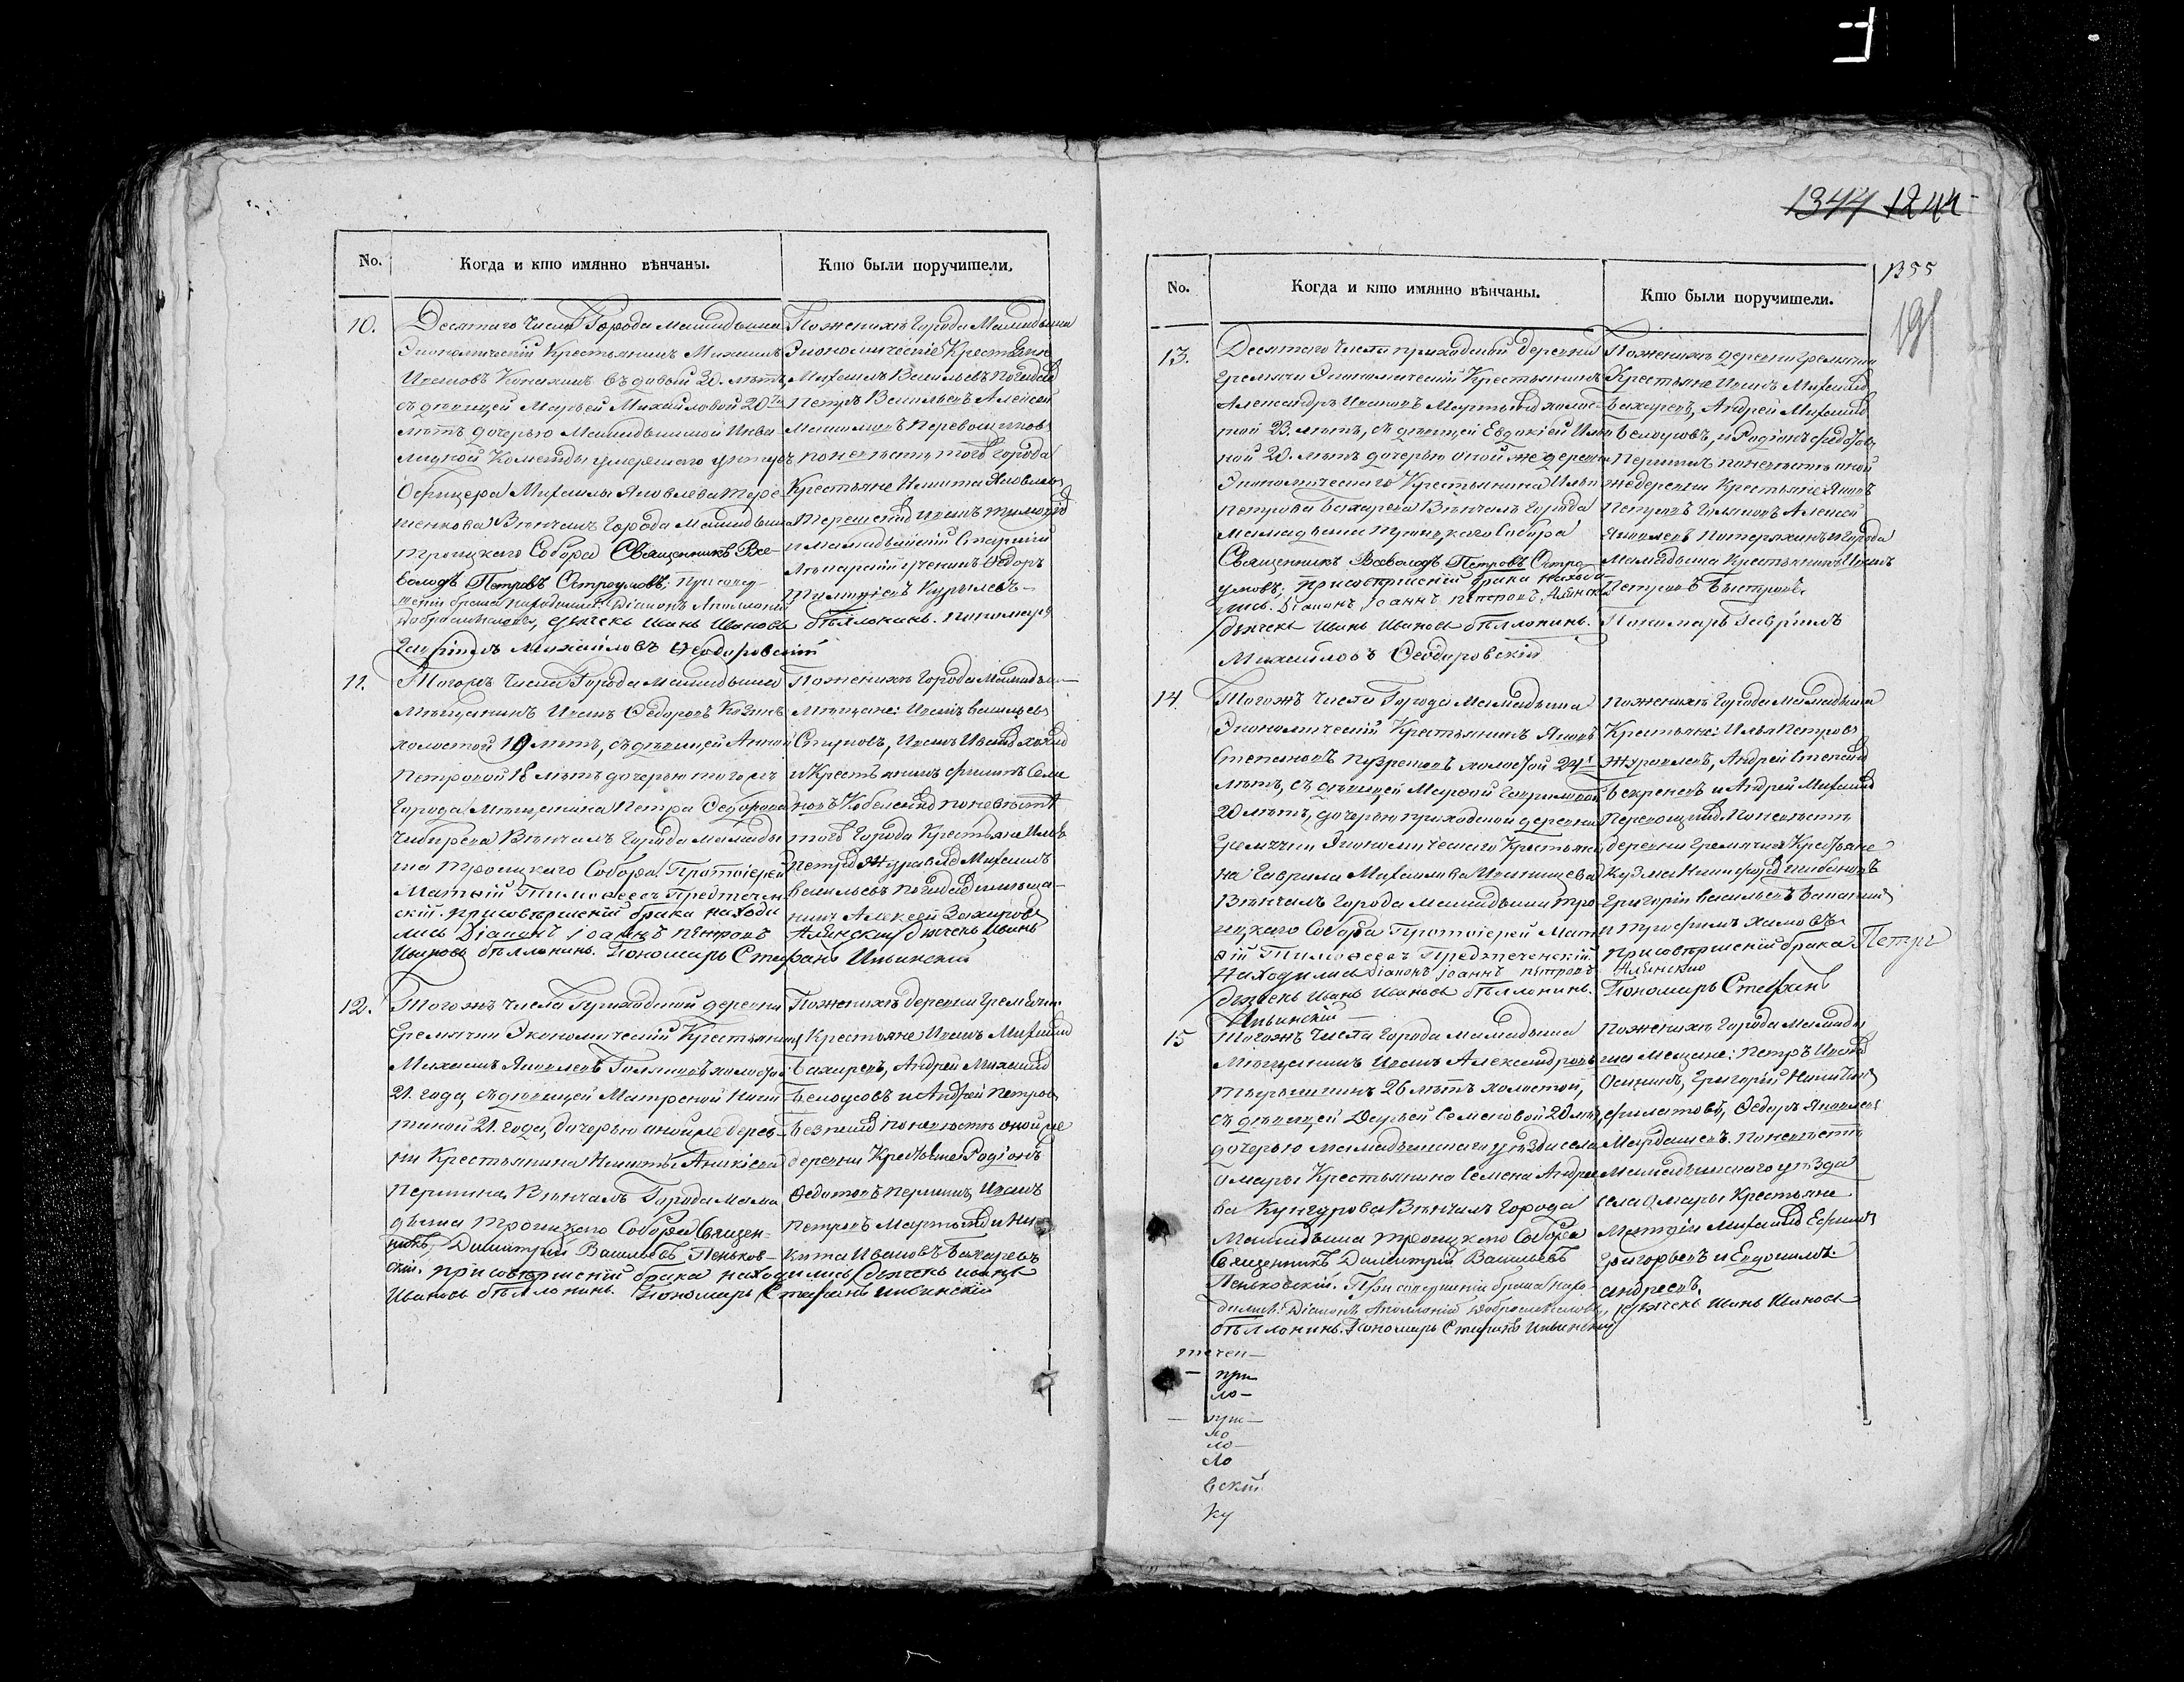 No. Когда и кто имянно вѣнчаны. Кто были поручители.
10.
Десятаго числа Города Мамадыша
Экономическій Крестьянинъ Михаилъ
Ивановъ вдовой 30. лѣтъ,
съ дѣвицей Марьей Михайловой 20
лѣтъ дочерью Мамадышской Инва-
лидной Команды умершаго унтеръ
Офицера Михаила Яковлева Тере-
шенкова Вѣнчалъ Города Мамадыша
Троицкаго Собора Священникъ Все-
володъ Петровъ Остроумовъ; При совер-
шеніи брака находились: Діаконъ Аполлоній
Добросмысловъ, дьячекъ Иванъ Ивановъ Бѣллонинъ. пономарь
Гавріилъ Михайловъ Ѳеодоровскій
По женихѣ Города Мамадыша
Экономическіе Крестьяне
Михаилъ Васильевъ
Петръ Васильевъ Алексей
по невѣстѣ тогожъ Города
Крестьяне Никита Яковлевъ
Иванъ
и Мамадышскій Старшій
Лѣкарскій ученикъ Ѳедоръ
Курылевъ
11.
Тогожъ числа Города Мамадыша
Мѣщанинъ Иванъ Ѳедоровъ
холостой 19 лѣтъ, съ дѣвицей Анной
Петровой 18 лѣтъ дочерью тогожъ
Города Мѣщанина Петра Ѳедорова
Чибирева Вѣнчалъ Города Мамады-
ша Троицкаго Собора Протоіерей
Матѳій Тимоѳеевъ Предтечен-
скій. при совѣршеніи брака находи
лись Діаконъ Іоаннъ Петровъ Алѣнскій дьячекъ Иванъ
Ивановъ бѣллонинъ. Пономарь Стефанъ Ильинскій
По женихѣ Города Мамадыша
Мѣщане: Иванъ Васильевъ
Иванъ Ивановъ
и Крестьянинъ Филатъ Семе
новъ по невѣстѣ
тогожъ Города Крестьяне Илья
Петровъ Журавлевъ Михаилъ
Васильевъ и мѣща-
нинъ Алексей Захаровъ
12.
Тогожъ числа Приходской деревни
Гремячки Экономическій Крестьянинъ
Михаилъ Яковлевъ холостой
21. года, съ дѣвицей Матреной Ники
тиной 21. года, дочерью оной же дерев-
ни Крестьянина Никиты Аникіева
Першина Вѣнчалъ Города Мама
дыша Троицкаго Собора Священ-
никъ Димитрій Васильевъ Пеньков-
скій. при совѣршеніи брака находились дьячекъ иванъ
Ивановъ бѣллонинъ. Пономарь Стефанъ Ильинскій
По женихѣ деревни Гремячки
Крестьяне Иванъ Михайловъ
Бахаревъ, Андрей Михайловъ
Белоусовъ и Андрей Петровъ
по невѣстѣ оной же
деревни Крестьяне Родіонъ
Ѳедотовъ Першинъ, Иванъ
Петровъ Мартыновъ и Ни-
кита Ивановъ Бахаревъ
1344 1244
1355
191
No. Когда и кто имянно вѣнчаны. Кто были поручители.
13.
Десятаго числа приходской деревни
Гремячки Экономическій Крестьянинъ
Александръ Ивановъ Мартыновъ холос-
той 23. лѣтъ, съ дѣвицей Евдокіей Ильи
ной 20. лѣтъ дочерью оной же деревни
Экономическаго Крестьянина Ильи
Петрова Бахарева Вѣнчалъ Города
Мамадыша Троицкаго Собора
Священникъ Всеволодъ Петровъ Остро-
умовъ; при совѣршеніи брака находи
лись. Діаконъ Іоаннъ Петровъ Алѣнскій
дьячекъ Иванъ Ивановъ бѣллонинъ. Пономарь Гавріилъ
Михаиловъ Ѳеодоровскій
По женихѣ деревни Гремячки
Крестьяне Иванъ Михайловъ
Бахаревъ, Андрей Михайловъ
Белоусовъ, и Родіонъ Ѳедотовъ
Першинъ по невѣстѣ оной
же деревни Крестьяне: Яковъ
Петровъ Алексей
Яковлевъ и города
Мамадыша Крестьянинъ Иванъ
Петровъ Быстровъ
14.
Тогожъ числа Города Мамадыша
Экономическій Крестьянинъ Яковъ
Степановъ холостой 24
лѣтъ, съ дѣвицей Марѳой Гавриловой
20 лѣтъ, дочерью приходской деревни
Гремячки Экономическаго Крестьяни
на Гаврила Михаилова
Вѣнчалъ Города Мамадыша Тро-
ицкаго Собора Протоіерей Мат-
ѳій Тимоѳеевъ Предтеченскій.
при совѣршеніи брака
находились діаконъ іоаннъ петровъ Алѣнскій
дьячекъ Иванъ Ивановъ бѣллонинъ. Пономарь Стефанъ
Ильинскій
По женихѣ города Мамадыша
Крестьяне: Илья Петровъ
Журавлевъ, Андрей Степановъ
и Андрей Михайловъ
По невѣстѣ
деревни Гремячки Крестьяне
Кузма
Григорій Васильевъ
и Трофимъ
Петръ
15
Тогожъ числа города Мамадыша
Мѣщанинъ Иванъ Александровъ
26 лѣтъ холостой,
съ дѣвицей Дарьей Семеновой 20 лѣтъ,
дочерью Мамадышскаго уѣзда села
Омары Крестьянина Семена Андрее
ва Кунгурова Вѣнчалъ Города
Мамадыша Троицкаго Собора
Священникъ Димитрій Васильевъ
Пеньковскій. При совершеніи брака нахо-
дились: Діаконъ Аполлоній Добросмысловъ, дьячекъ Иванъ Ивановъ
бѣллонинъ. Пономарь Стефанъ Ильинскій
По женихѣ города Мамады
ша Мещане: Петръ Ивановъ
Осининъ, Григорій Никитинъ
Филатовъ, Ѳедоръ Яковлевъ
Мардашевъ. По невѣстѣ
Мамадышскаго уѣзда
Села Омары Крестьяне
Матвѣй Михайловъ Ефимъ
Григорьевъ и Евдокимъ
Андреевъ.
течен—
— при
ло—
— при—
ло
ло—
ло
вскій
ку